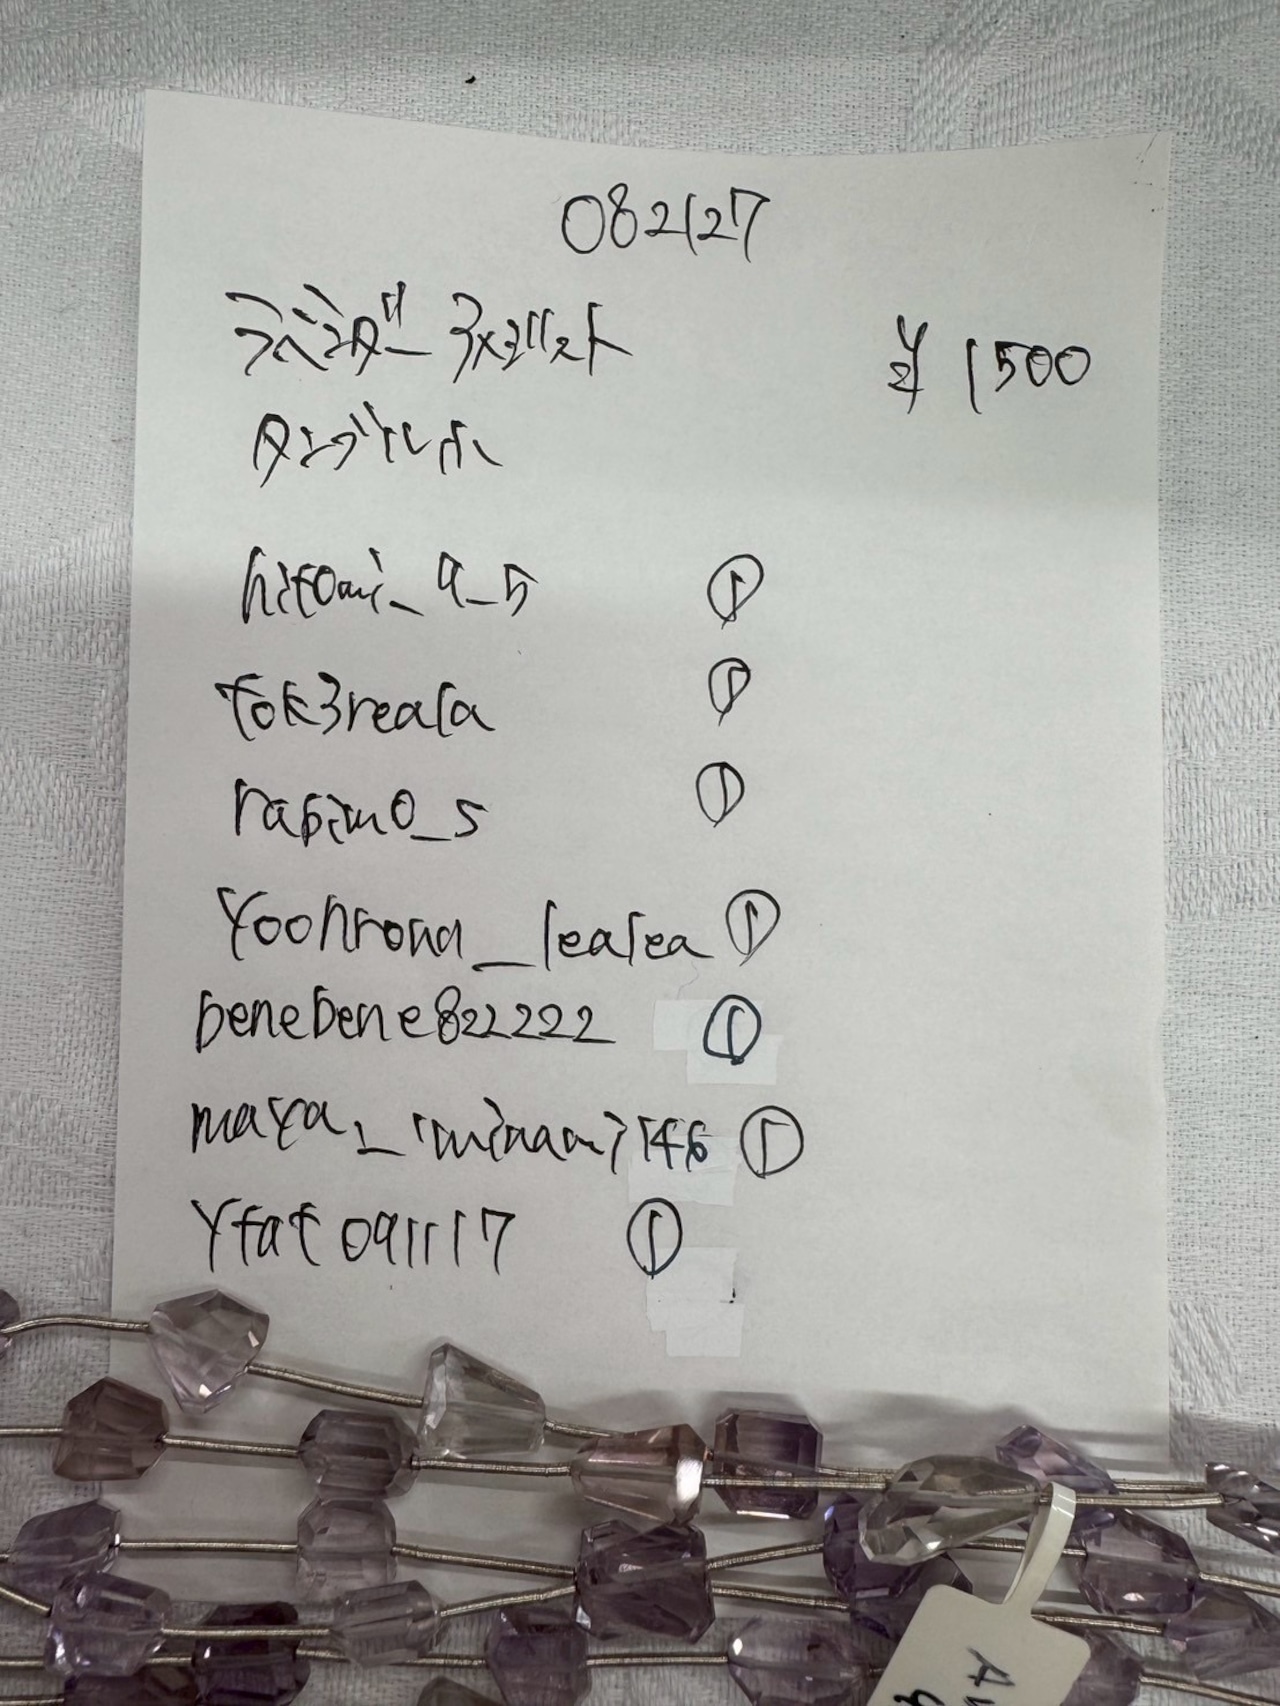 082127
ラベンダーアメジスト ¥1500
タンブルカット
hitomi_9_5 ①
tok3reala ①
rabimo_s ①
yoohrona_lealea ①
benebene822222 ①
maya_minami146 ①
yfat091117 ①